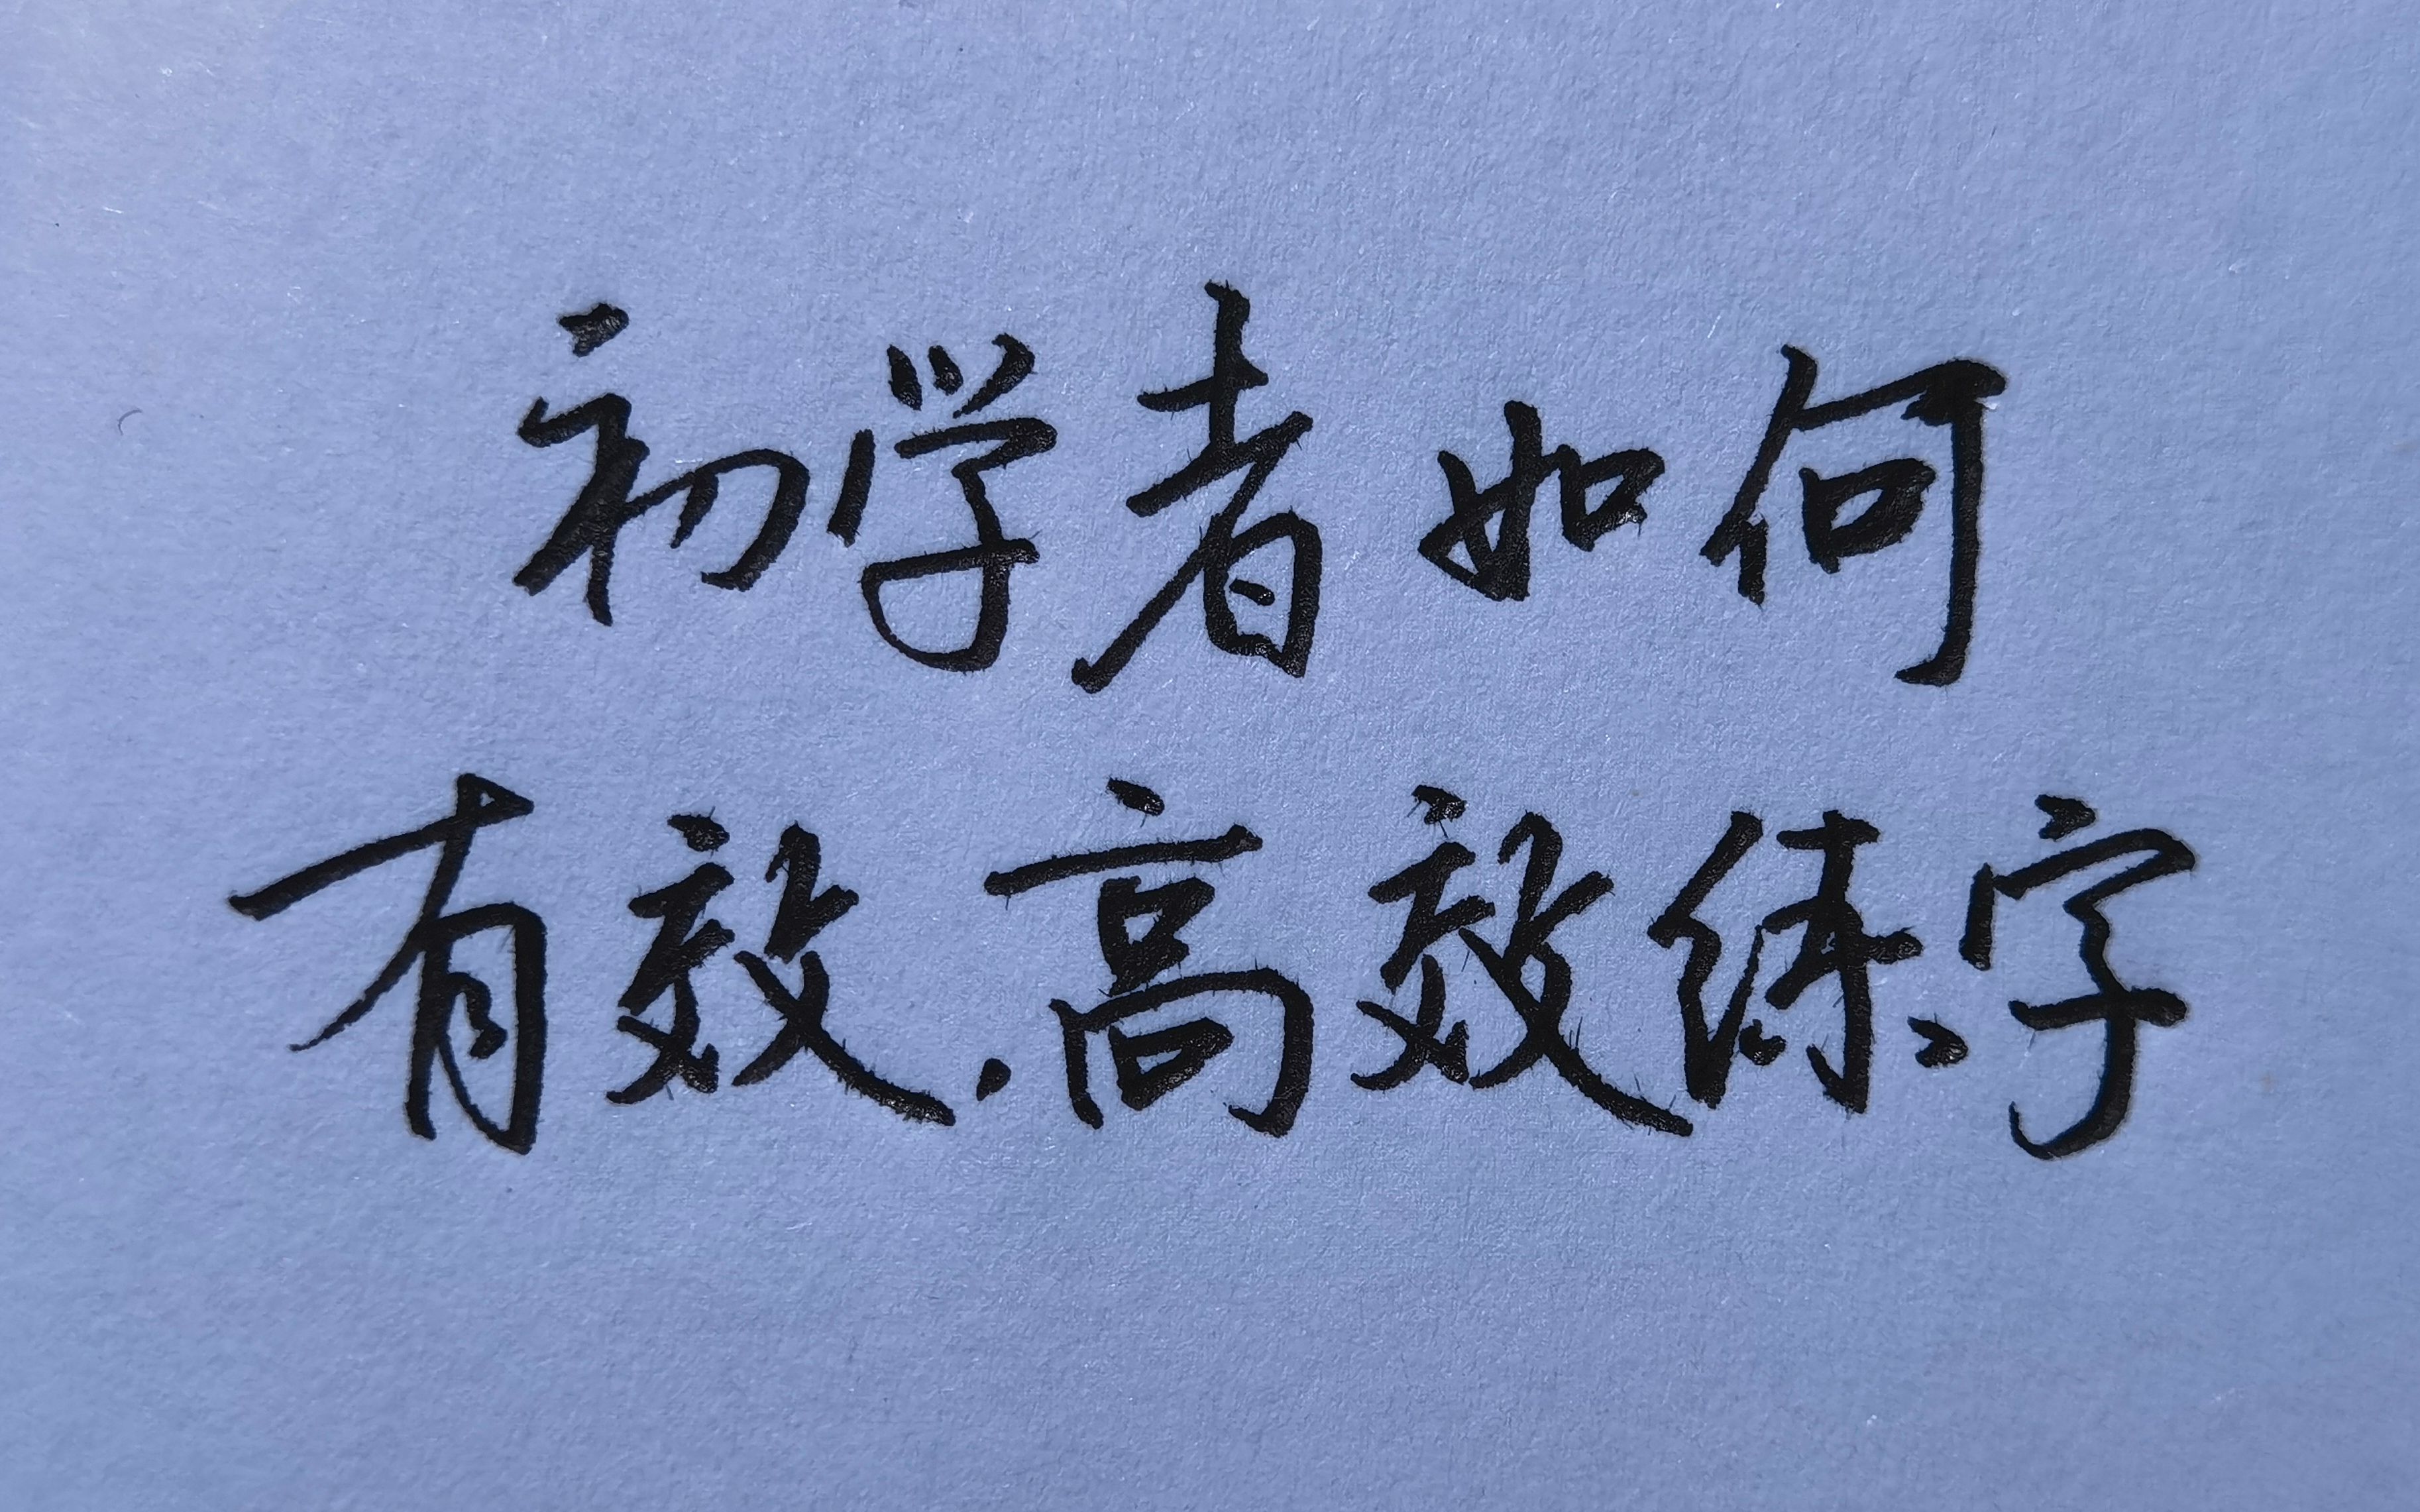 初学者如何
有效.高效练字